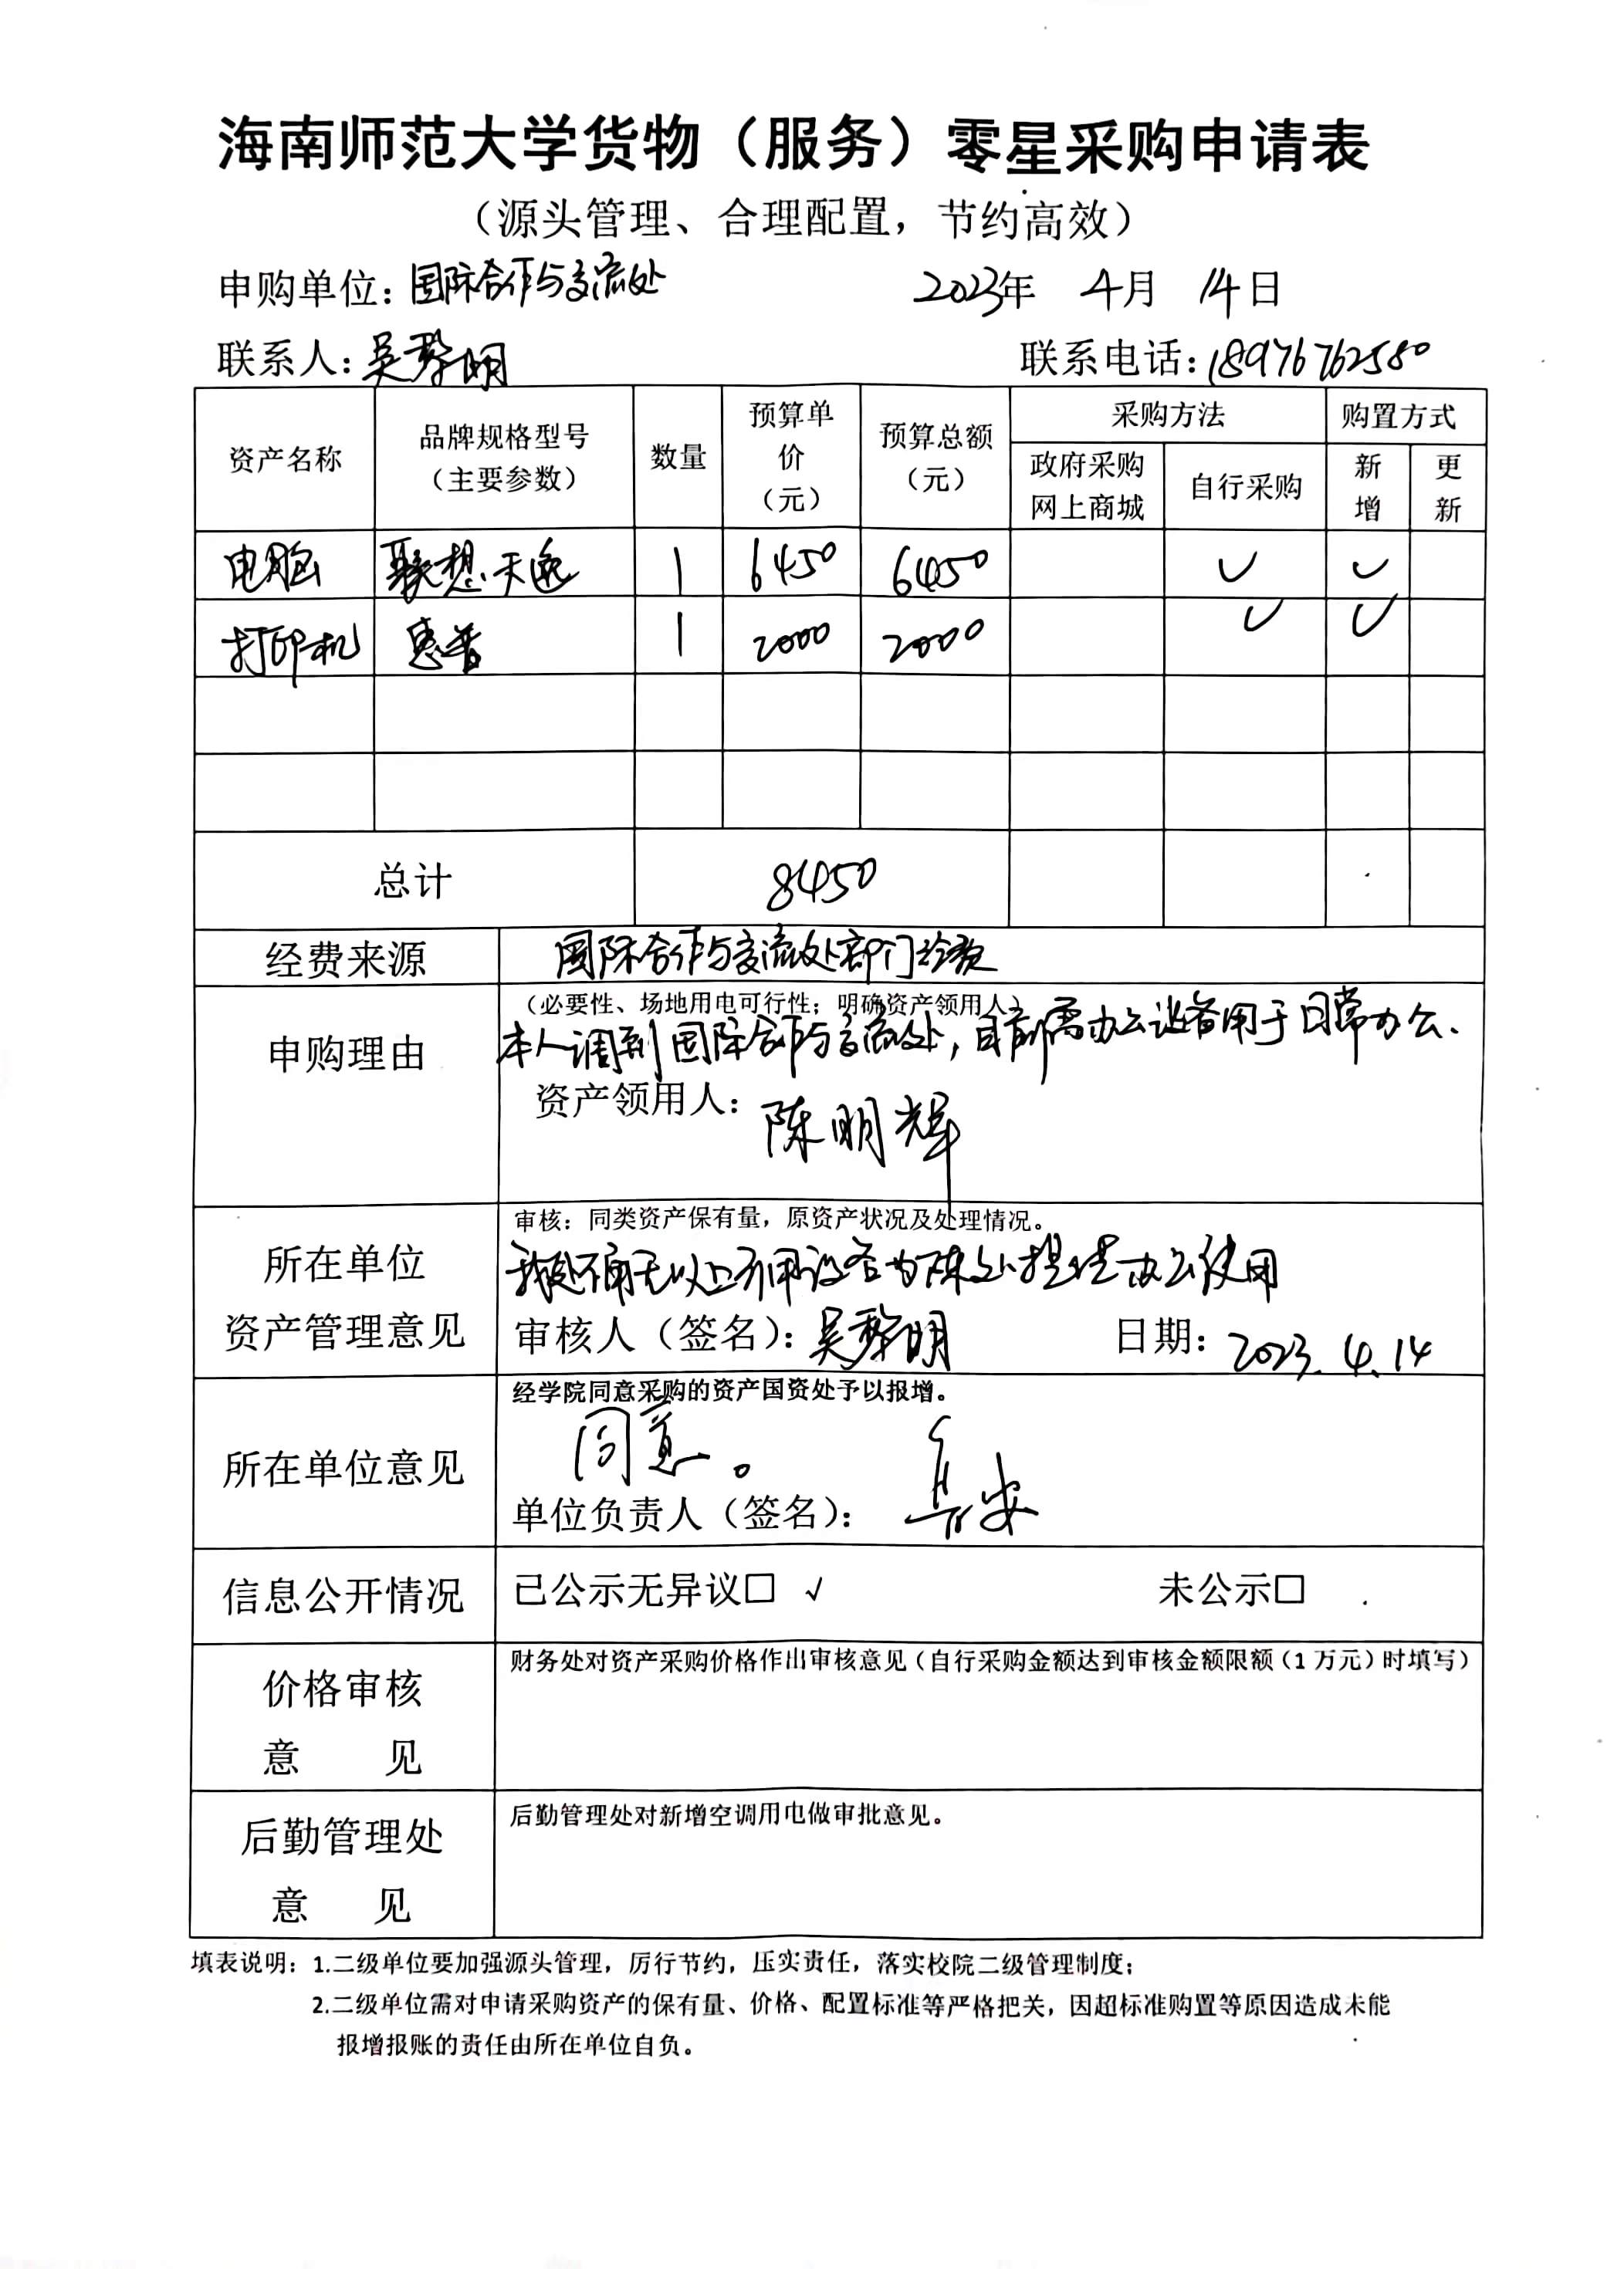 海南师范大学货物（服务）零星采购申请表
（源头管理、合理配置，节约高效）
申购单位：国际合作与交流处 2023年 4月 14日
联系人：吴黎明 联系电话：18976762580
资产名称 品牌规格型号（主要参数） 数量 预算单价（元） 预算总额（元） 采购方法 购置方式
政府采购网上商城 自行采购 新增 更新
电脑 联想天逸 1 6450 6450 ✓ ✓
打印机 惠普 1 2000 2000 ✓ ✓
总计 8450
经费来源 国际合作与交流处部门经费
申购理由 （必要性、场地用电可行性；明确资产领用人）
本人调到国际合作与交流处，目前需办公设备用于日常办公.
资产领用人：陈明辉
所在单位资产管理意见 审核：同类资产保有量，原资产状况及处理情况。
我处 无以上 设备为陈处提供办公使用
审核人（签名）：吴黎明 日期：2023.4.14
所在单位意见 经学院同意采购的资产国资处予以报增。
同意。
单位负责人（签名）：
信息公开情况 已公示无异议□ √ 未公示□
价格审核意 见 财务处对资产采购价格作出审核意见（自行采购金额达到审核金额限额（1 万元）时填写）
后勤管理处意 见 后勤管理处对新增空调用电做审批意见。
填表说明：1.二级单位要加强源头管理，厉行节约，压实责任，落实校院二级管理制度；
2.二级单位需对申请采购资产的保有量、价格、配置标准等严格把关，因超标准购置等原因造成未能
报增报账的责任由所在单位自负。